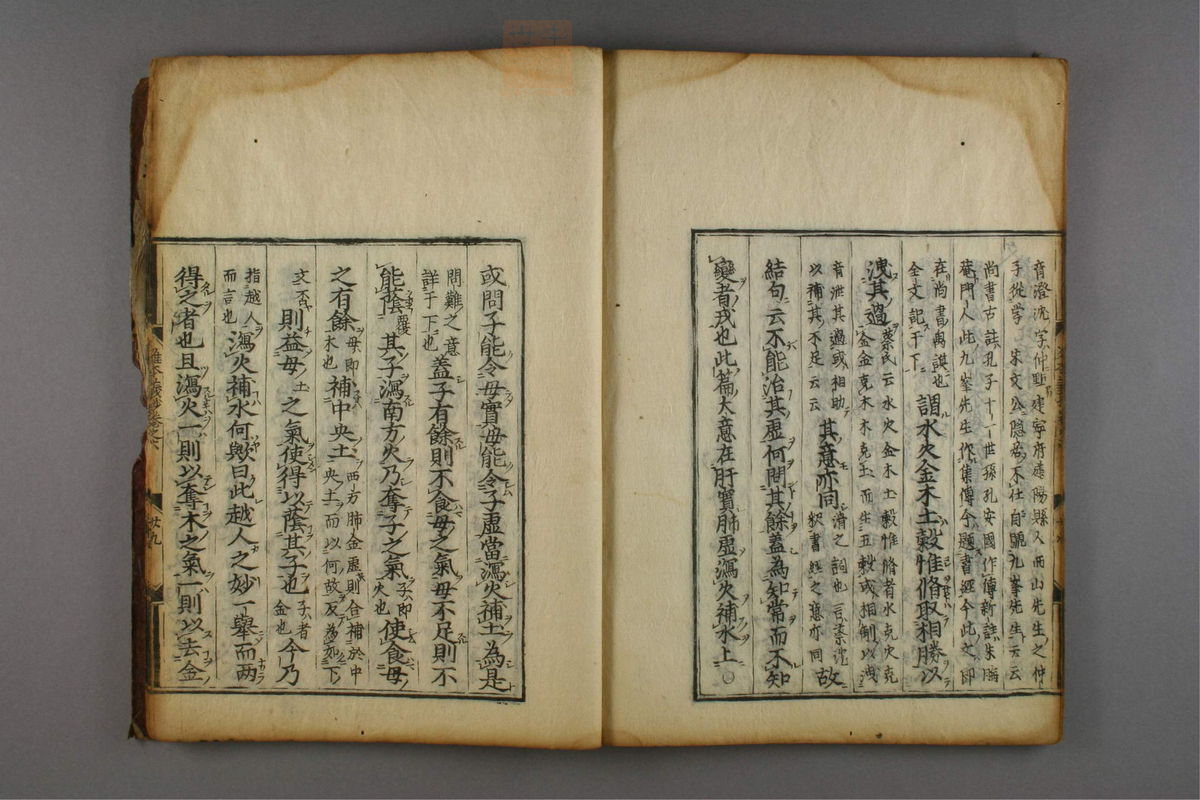 斉澄沈字仲黙建寧府建陽縣人西山先生之仲
子從学朱文公隠居不仕自号九峯先生云云
尚書古註孔子十一世孫孔安國作傳新註朱晦
菴門人此九峯先生作集傳今題書經今此文即
在尚書禹謨也謂水火金木土穀惟脩取相勝以
全文記于下
洩其過蔡氏云水火金木土穀惟脩者水克火克
金金克木木克土而生五穀或相制以洩
斉泄其過或相助其意亦同済之詞也言蔡沈故
以補其不足云云釈書經之意亦同
結句云不能治其虚何問其餘蓋為知常而不知
變者戒也此篇大意在肝實肺虚瀉火補水上○
或問子能令母實母能令子虚當瀉火補土為是
問難之意蓋子有餘則不食母之氣母不足則不
詳于下也
能蔭覆其子瀉南方火乃奪子之氣子即使食母
火也
之有餘母即補中央土西方肺金虚則合補於中
木也央土而以何故反為如下
文否則益母土之氣使得以蔭其子也子者今乃
金也
指越人瀉火補水何歟曰此越人之妙一舉而两
而言也
得之者也且瀉火一則以奪木之氣一則以去金
廿九